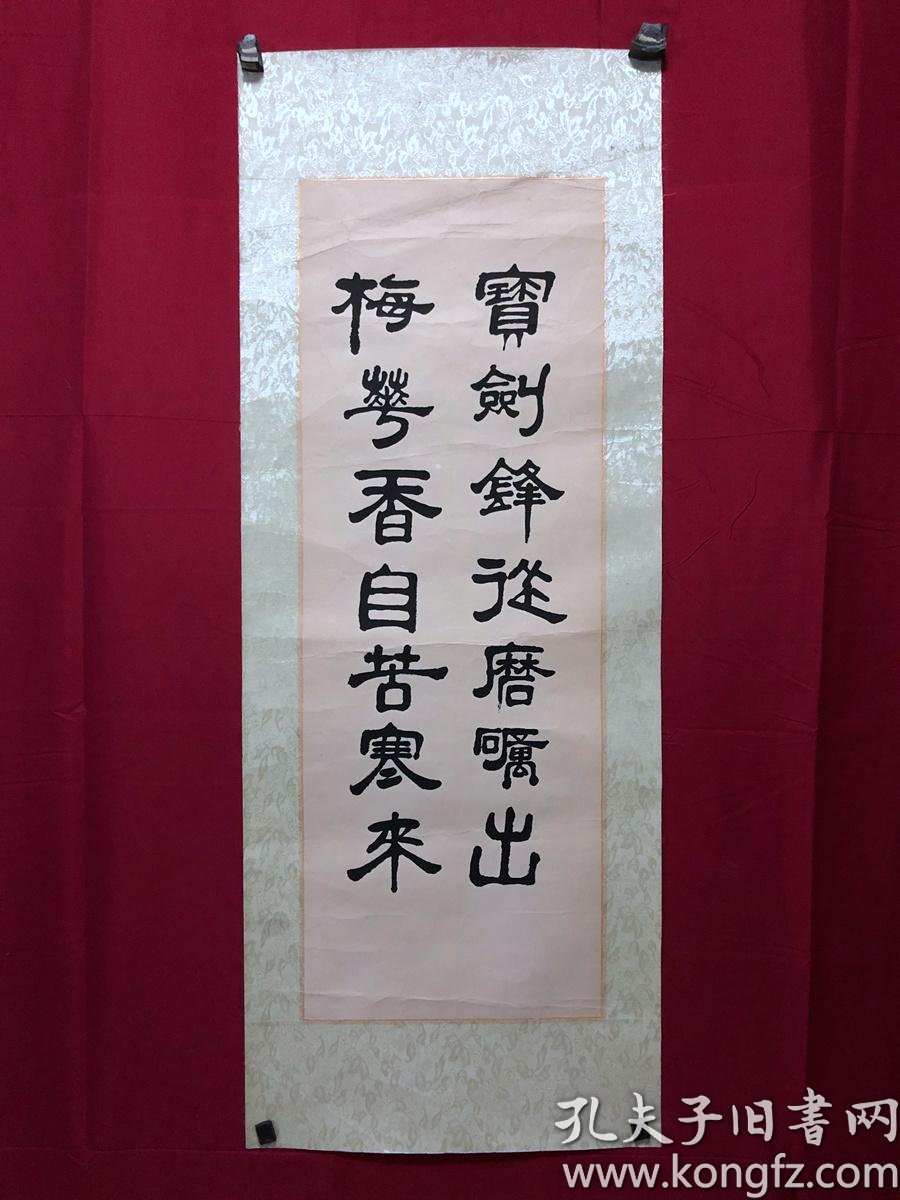 寶劍鋒從磨礪出
梅華香自苦寒來
孔夫子旧書网
www.kongfz.com